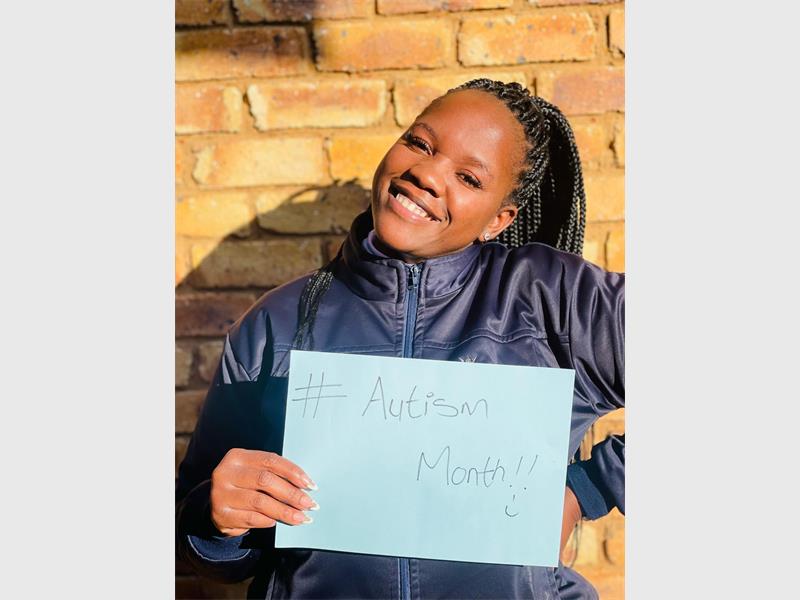 # Autism
Month!!
:)